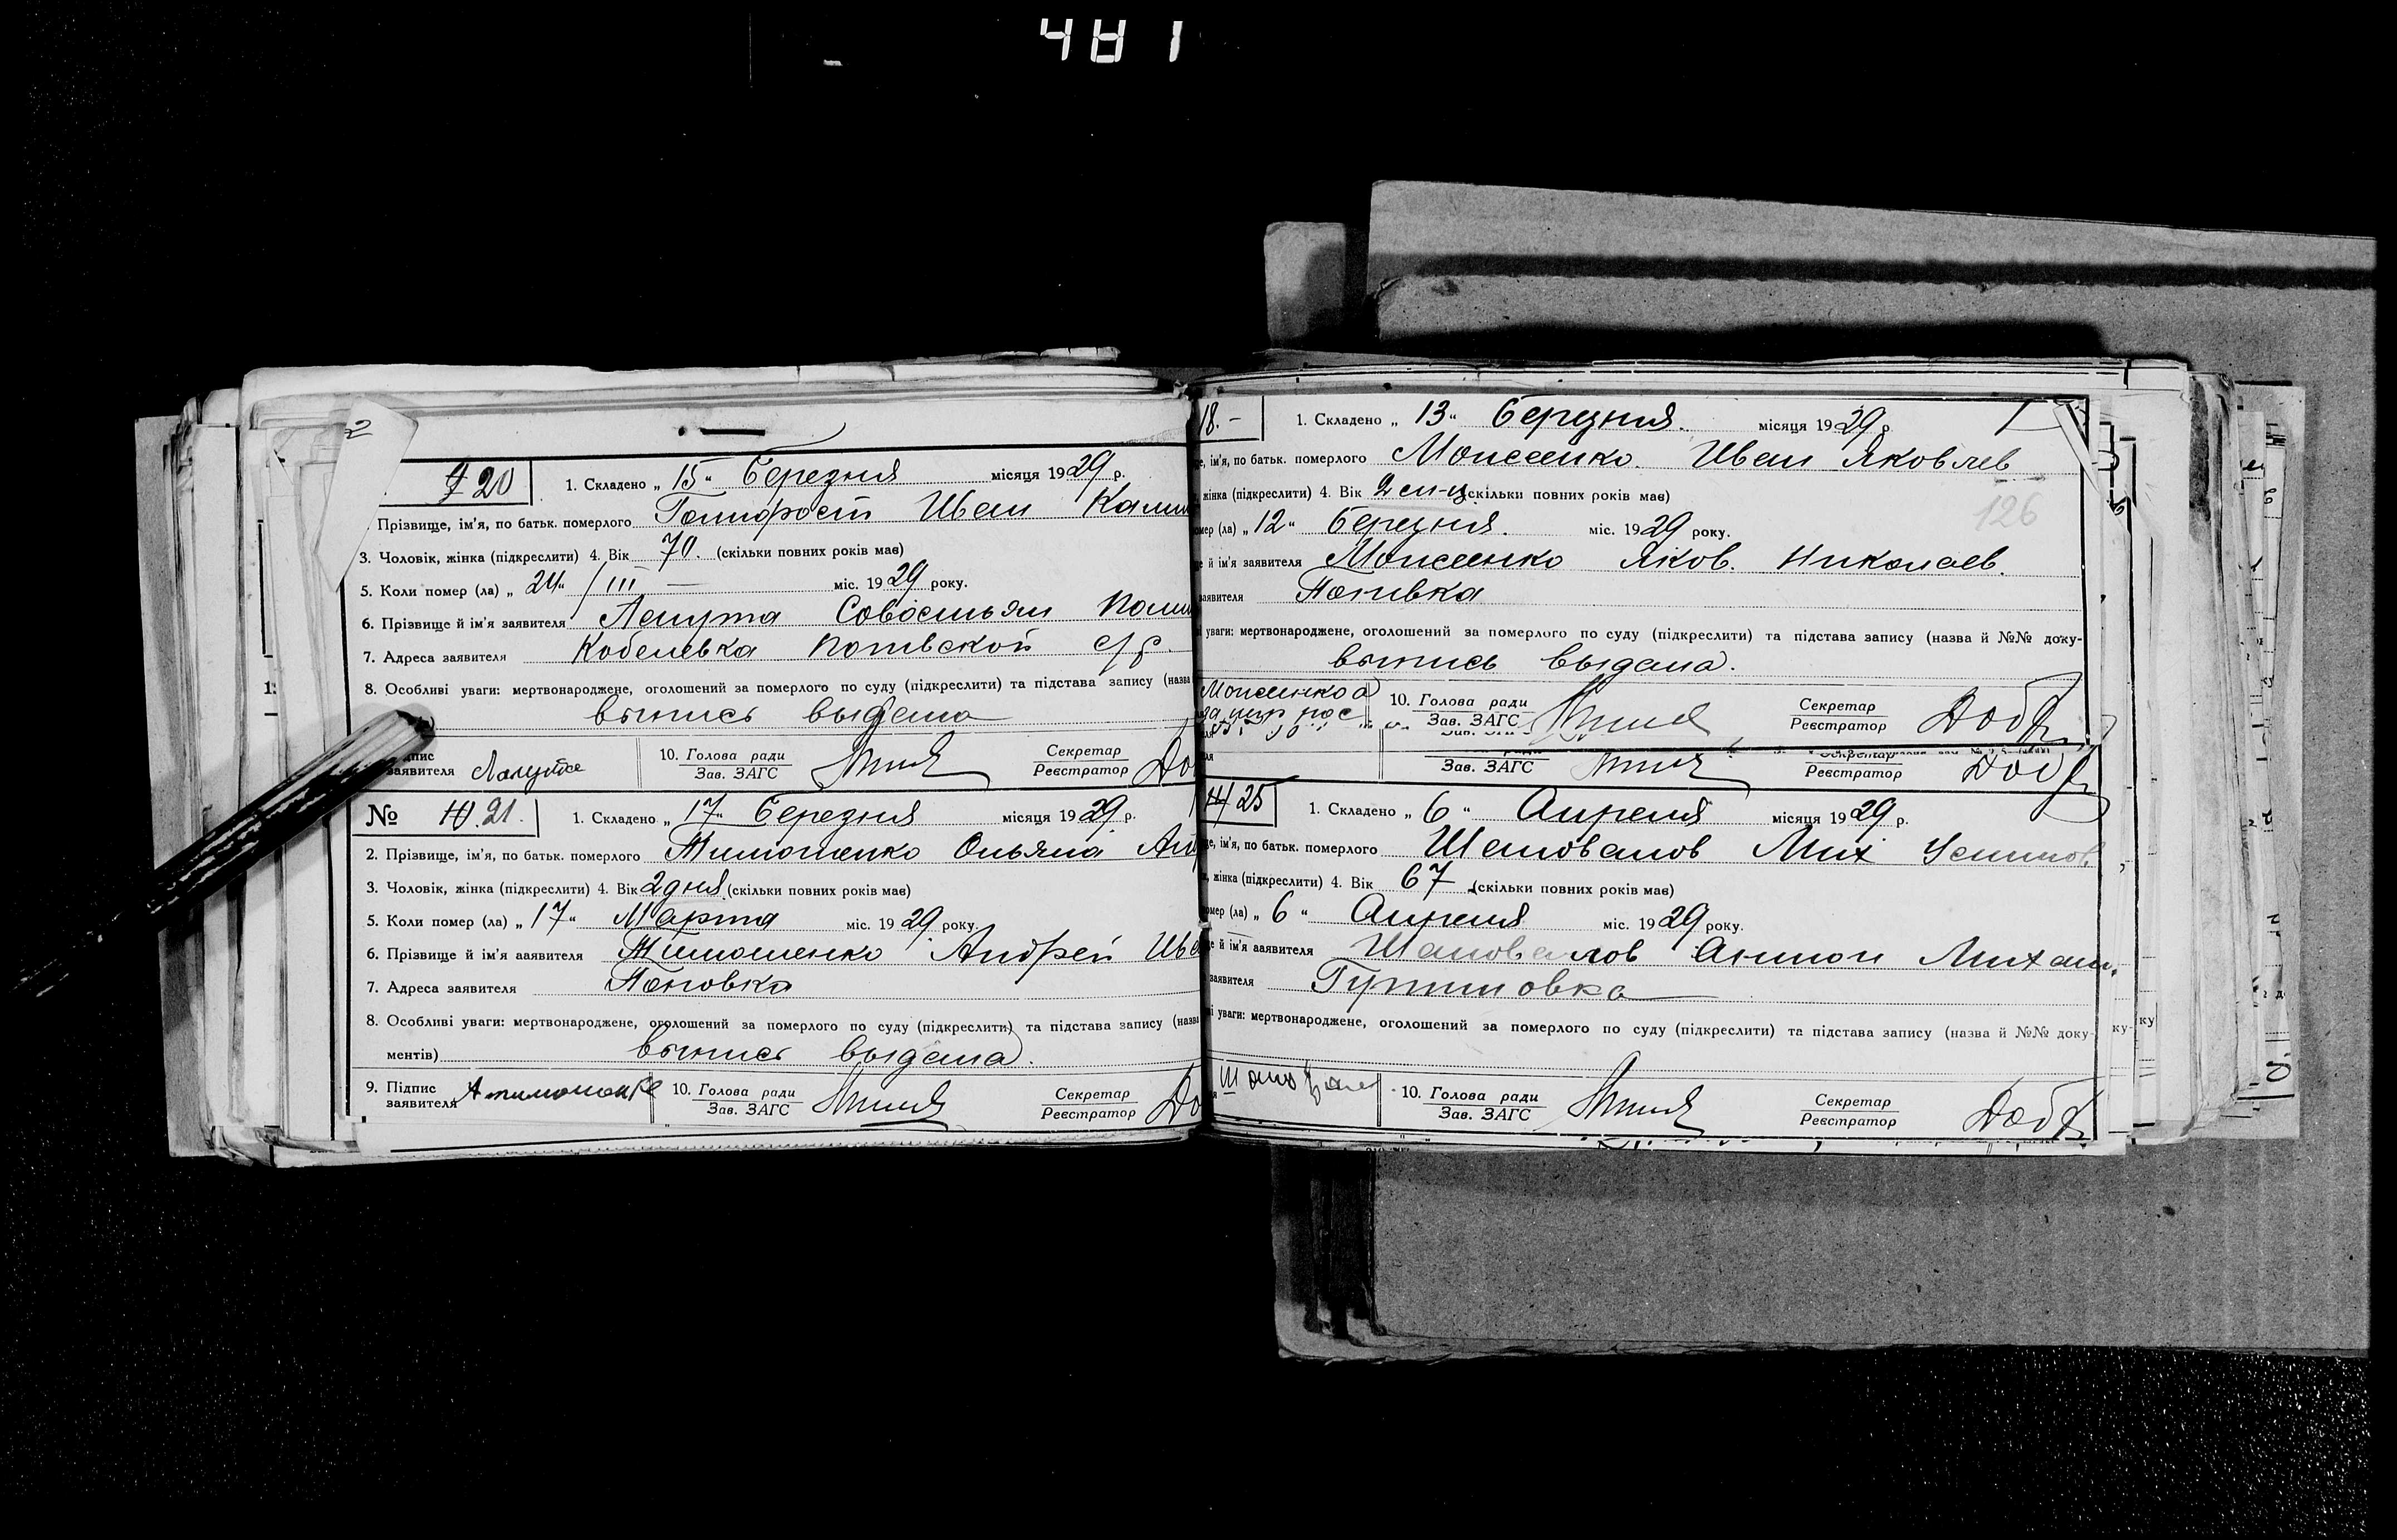 481
2
20
1. Складено „ 15 “ Березня місяця 1929 р.
Прізвище, ім'я, по батьк. померлого Иван
3. Чоловік, жінка (підкреслити) 4. Вік 70. (скільки повних років має)
5. Коли помер (ла) „ 24 “ / III — міс. 1929 року.
6. Прізвище й ім'я заявителя
7. Адреса заявителя Кобелевка Попівской с/р.
8. Особливі уваги: мертвонароджене, оголошений за померлого по суду (підкреслити) та підстава запису (назва
выпись выдана
заявителя
10. Голова ради
Зав. ЗАГС
Секретар
Реєстратор
№ 21.
1. Складено „ 17 “ Березня місяця 1929 р.
2. Прізвище, ім'я, по батьк. померлого Тимошенко Ольяна
3. Чоловік, жінка (підкреслити) 4. Вік 2 дня (скільки повних років має)
5. Коли помер (ла) „ 17 “ Марта міс. 1929 року.
6. Прізвище й ім'я заявителя Тимошенко Андрей Ива
7. Адреса заявителя Поповка
8. Особливі уваги: мертвонароджене, оголошений за померлого по суду (підкреслити) та підстава запису (назва
ментів) выпись выдана.
9. Підпис
заявителя Атимошенко
10. Голова ради
Зав. ЗАГС
Секретар
Реєстратор
18.-
1. Складено „ 13 “ Березня. місяця 1929 р.
ім'я, по батьк. померлого Моисеенко. Иван Яковлев
жінка (підкреслити) 4. Вік 2 (скільки повних років має)
126
(ла) „ 12 “ Березня. міс. 1929 року.
й ім'я заявителя Моисеенко Яков. Николаев.
заявителя Попивка
уваги: мертвонароджене, оголошений за померлого по суду (підкреслити) та підстава запису (назва й №№ доку-
выпись выдана.
Моисеенко
10. Голова ради
Зав. ЗАГС
Секретар
Реєстратор
Зав. ЗАГС
Реєстратор
25
1. Складено „ 6 “ Апреля місяця 1929 р.
ім'я, по батьк. померлого Шаповалов Мих
жінка (підкреслити) 4. Вік 67 (скільки повних років має)
(ла) „ 6 “ Апреля міс. 1929 року.
й ім'я заявителя Шаповалов Михаил.
заявителя
уваги: мертвонароджене, оголошений за померлого по суду (підкреслити) та підстава запису (назва й №№ доку-
10. Голова ради
Зав. ЗАГС
Секретар
Реєстратор